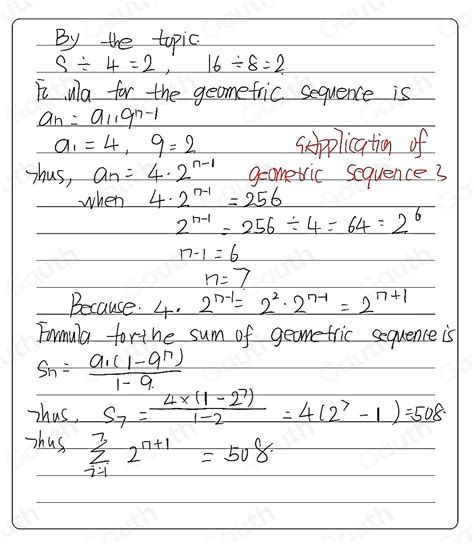 By the topic
8 ÷ 4 = 2, 16 ÷ 8 = 2
for the geometric sequence is
an = a1 · q^n-1
a1 = 4, q = 2 <application of
Thus, an = 4 · 2^n-1 geometric sequence>
when 4 · 2^n-1 = 256
2^n-1 = 256 ÷ 4 = 64 = 2^6
n-1 = 6
n = 7
Because. 4 · 2^n-1 = 2^2 · 2^n-1 = 2^n+1
Formula for the sum of geometric sequence is
Sn = a1(1-q^n) / 1-q
Thus, S7 = 4×(1-2^7) / 1-2 = 4(2^7 - 1) = 508
Thus 7 ∑ i=1 2^n+1 = 508.
Gauth